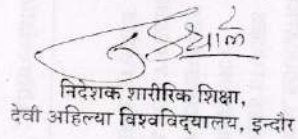 निदेशक शारीरिक शिक्षा,
देवी अहिल्या विश्वविद्यालय, इन्दौर